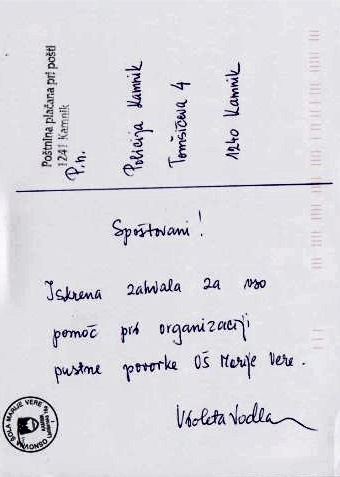 Poštnina plačana pri pošti
1241 Kamnik
P.n.
Policija Kamnik
Tomšičeva 4
1240 Kamnik
Spoštovani!
Iskrena zahvala za vso
pomoč pri organizaciji
pustne povorke OŠ Marije Vere.
Violeta Vodla
OSNOVNA ŠOLA MARIJE VERE